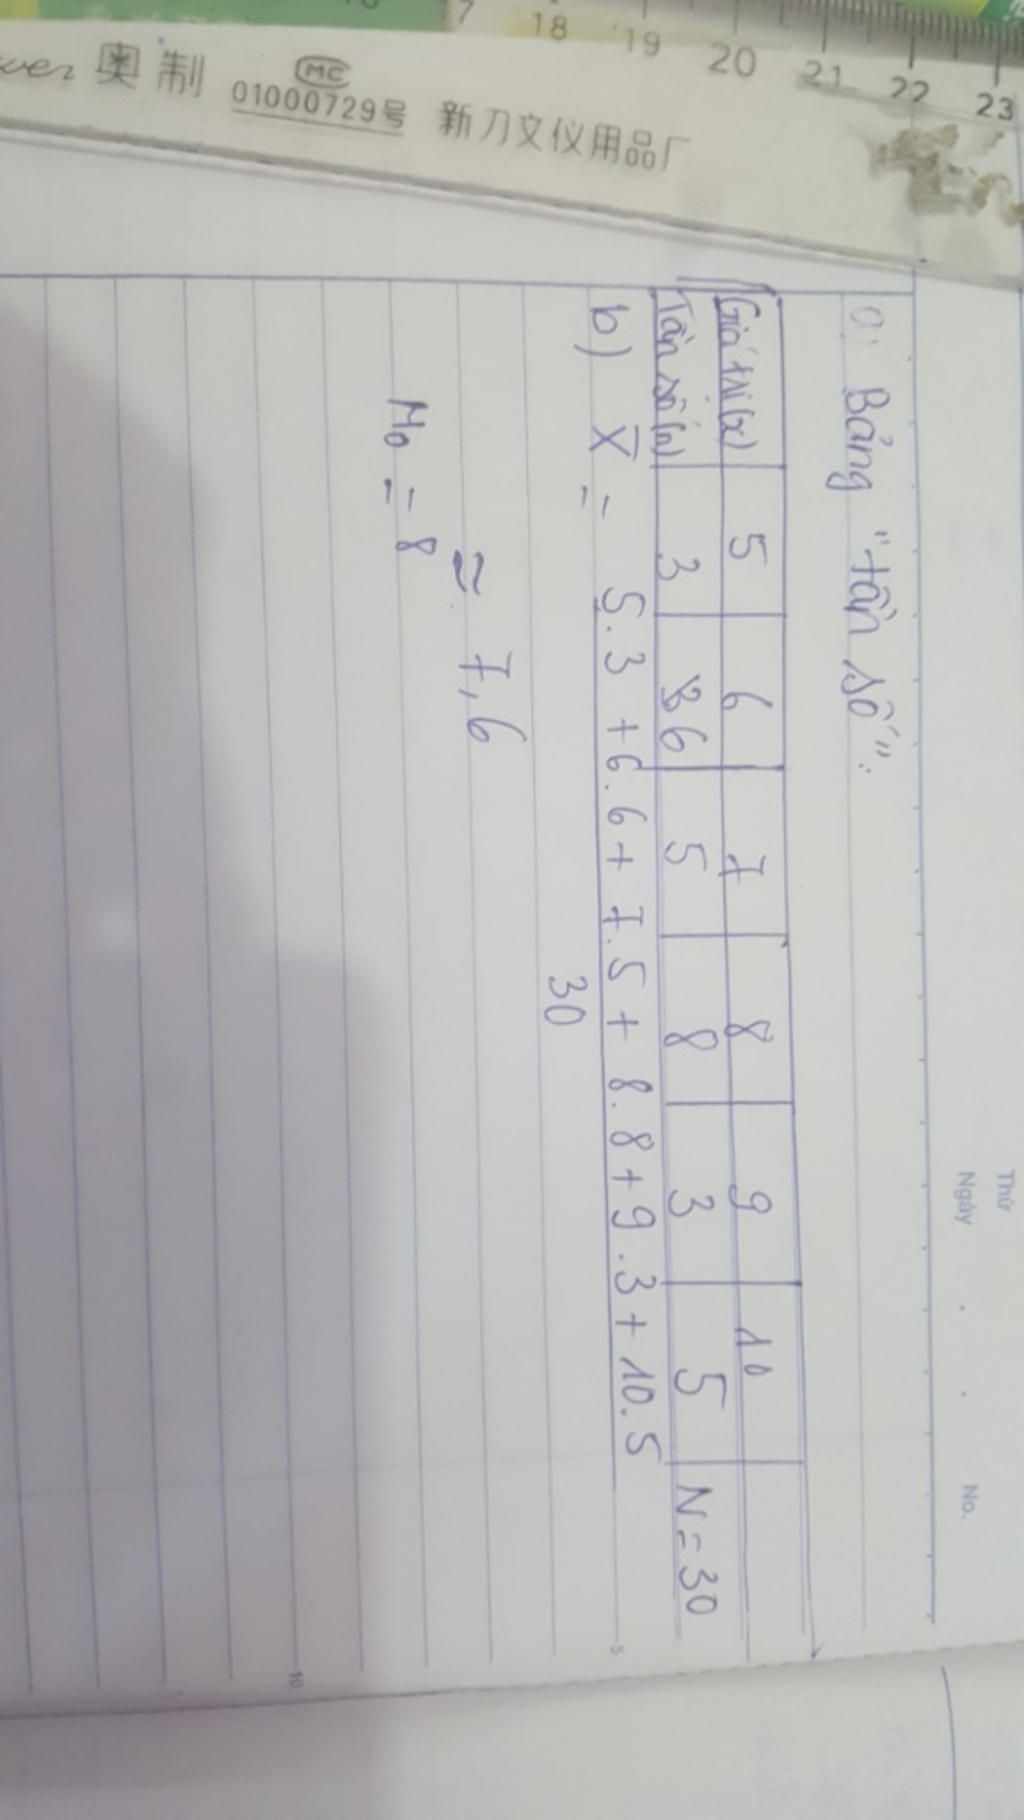 17 18 19 20 21 22 23
奥制 MC 01000729号 新刀文仪用品厂
Thứ
Ngày . . No.
a) Bảng "tần số":
Giá trị (x) 5 6 7 8 9 10
Tần số (n) 3 6 5 8 3 5 N = 30
b) X̄ = 5.3 + 6.6 + 7.5 + 8.8 + 9.3 + 10.5
30
≈ 7,6
M₀ = 8
5
10